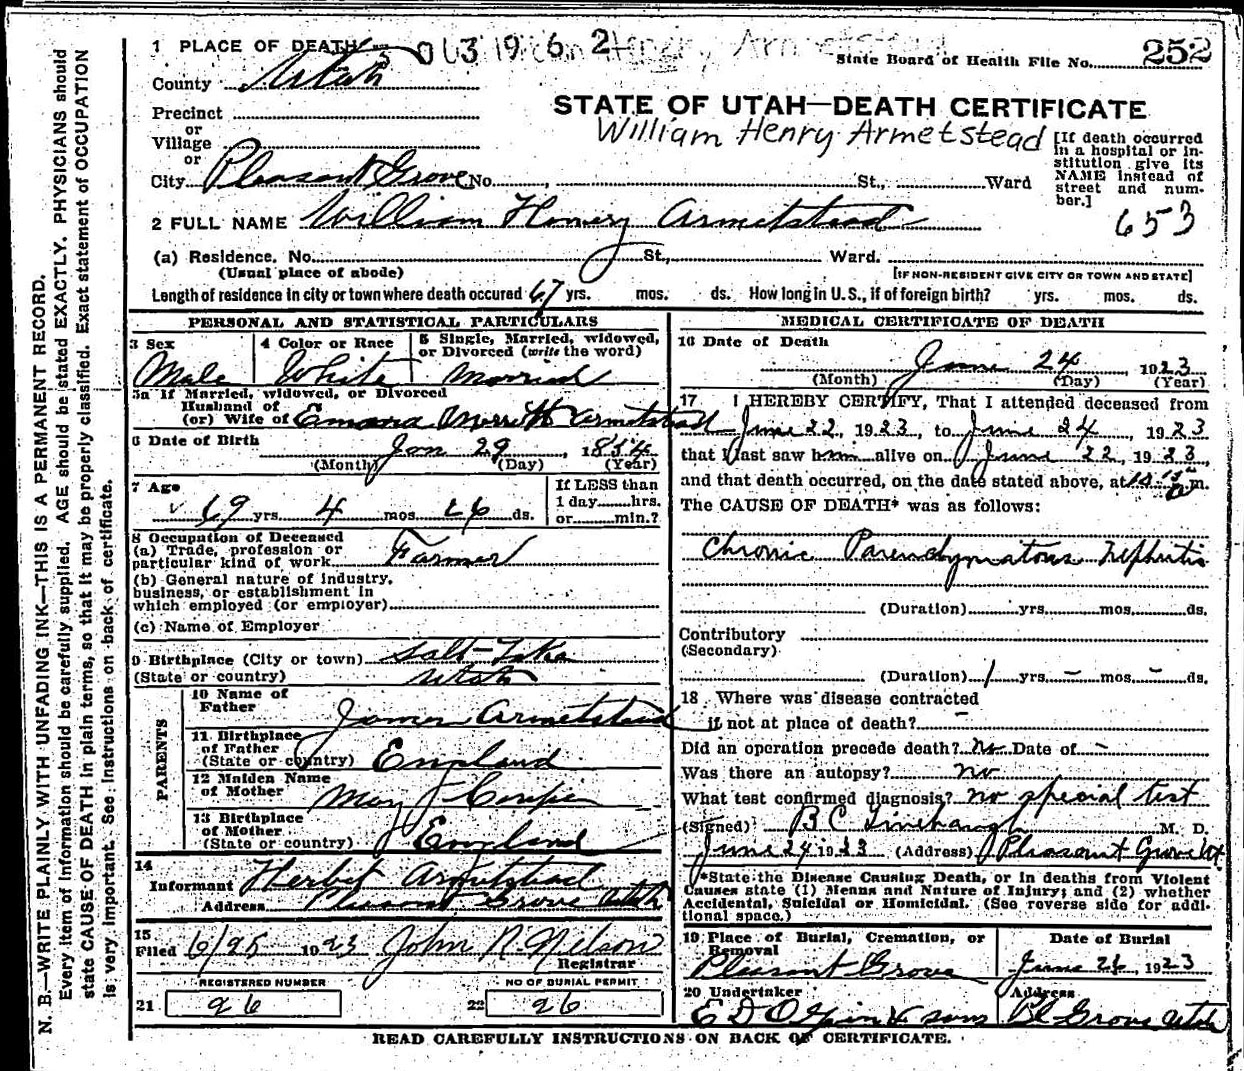 1 PLACE OF DEATH
State Board of Health File No. 252
County Utah
STATE OF UTAH—DEATH CERTIFICATE
William Henry Armetstead
Precinct
or
Village
or
City Pleasant Grove No. , St., Ward
[If death occurred
in a hospital or in-
stitution give its
NAME instead of
street and num-
ber.]
653
2 FULL NAME William Henry Armetstead
(a) Residence. No. St., Ward.
(Usual place of abode)
[IF NON-RESIDENT GIVE CITY OR TOWN AND STATE]
Length of residence in city or town where death occured 67 yrs. mos. ds. How long in U. S., if of foreign birth? yrs. mos. ds.
PERSONAL AND STATISTICAL PARTICULARS
3 Sex
Male
4 Color or Race
White
5 Single, Married, widowed,
or Divorced (write the word)
Married
5a If Married, widowed, or Divorced
Husband of
(or) Wife of Armetstead
6 Date of Birth
Jan 29, 1854
(Month) (Day) (Year)
7 Age
69 yrs. 4 mos. 26 ds.
If LESS than
1 day hrs.
or min.?
8 Occupation of Deceased
(a) Trade, profession or
particular kind of work Farmer
(b) General nature of industry,
business, or establishment in
which employed (or employer)
(c) Name of Employer
9 Birthplace (City or town) Salt-Lake
(State or country) Utah
PARENTS
10 Name of
Father James Armetstead
11 Birthplace
of Father
(State or country) England
12 Maiden Name
of Mother Mary
13 Birthplace
of Mother
(State or country) England
14
Informant Herbet Armetstead
Address Pleasant Grove Utah
15
Filed 6/25 1923 John R Nelson
Registrar
REGISTERED NUMBER
21 26
NO OF BURIAL PERMIT
22 26
MEDICAL CERTIFICATE OF DEATH
16 Date of Death
June 24 1923
(Month) (Day) (Year)
17 I HEREBY CERTIFY, That I attended deceased from
June 22, 1923, to June 24, 1923
that I last saw him alive on June 22, 1923,
and that death occurred, on the date stated above, at m.
The CAUSE OF DEATH* was as follows:
Chronic Parenchymatous Nephritis
(Duration) yrs. mos. ds.
Contributory
(Secondary)
(Duration) 1 yrs. – mos. – ds.
18 Where was disease contracted
if not at place of death? –
Did an operation precede death? no Date of –
Was there an autopsy? no
What test confirmed diagnosis? no special test
(Signed) B C Linebaugh M. D.
June 24 1923 (Address) Pleasant Grove Ut
*State the Disease Causing Death, or in deaths from Violent
Causes state (1) Means and Nature of Injury; and (2) whether
Accidental, Suicidal or Homicidal. (See reverse side for addi-
tional space.)
19 Place of Burial, Cremation, or
Removal
Pleasant Grove
Date of Burial
June 26, 1923
20 Undertaker
E D Olpin & sons
Address
Pl Grove Utah
READ CAREFULLY INSTRUCTIONS ON BACK OF CERTIFICATE.
N. B.—WRITE PLAINLY WITH UNFADING INK—THIS IS A PERMANENT RECORD.
Every item of information should be carefully supplied. AGE should be stated EXACTLY. PHYSICIANS should
state CAUSE OF DEATH in plain terms, so that it may be properly classified. Exact statement of OCCUPATION
is very important. See instructions on back of certificate.